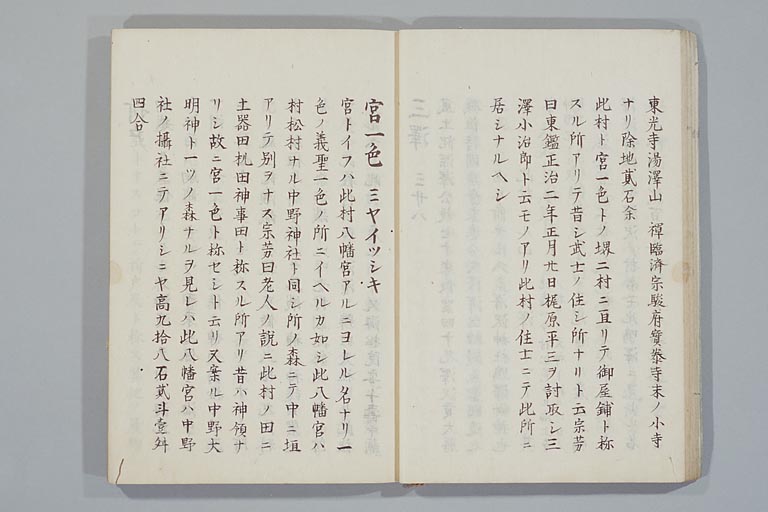 東光寺湯澤山 禪臨濟宗駿府寶泰寺末ノ小寺
ナリ除地貳石余
此村ト宮一色トノ堺二村ニ亘リテ御屋鋪ト称
スル所アリテ昔シ武士ノ住シ所ナリト云宗芳
曰東鑑正治二年正月廿日梶原平三ヲ討取シ三
澤小治郎ト云モノアリ此村ノ住士ニテ此所ニ
居シナルヘシ
宮一色 ミヤイツシキ
宮トイフハ此村八幡宮アルニヨレル名ナリ一
色ノ義聖一色ノ所ニイヘルカ如シ此八幡宮ハ
村松村ナル中野神社ト同シ所ノ森ニテ中ニ垣
アリテ別ヲナス宗芳曰老人ノ説ニ此村ノ田ニ
土器田机田神事田ト称スル所アリ昔ハ神領ナ
リシ故ニ宮一色ト称セシト云リ又案ル中野大
明神ト一ツノ森ナルヲ見レハ此八幡宮ハ中野
社ノ攝社ニテアリシニヤ高九拾八石貳斗壹舛
四合